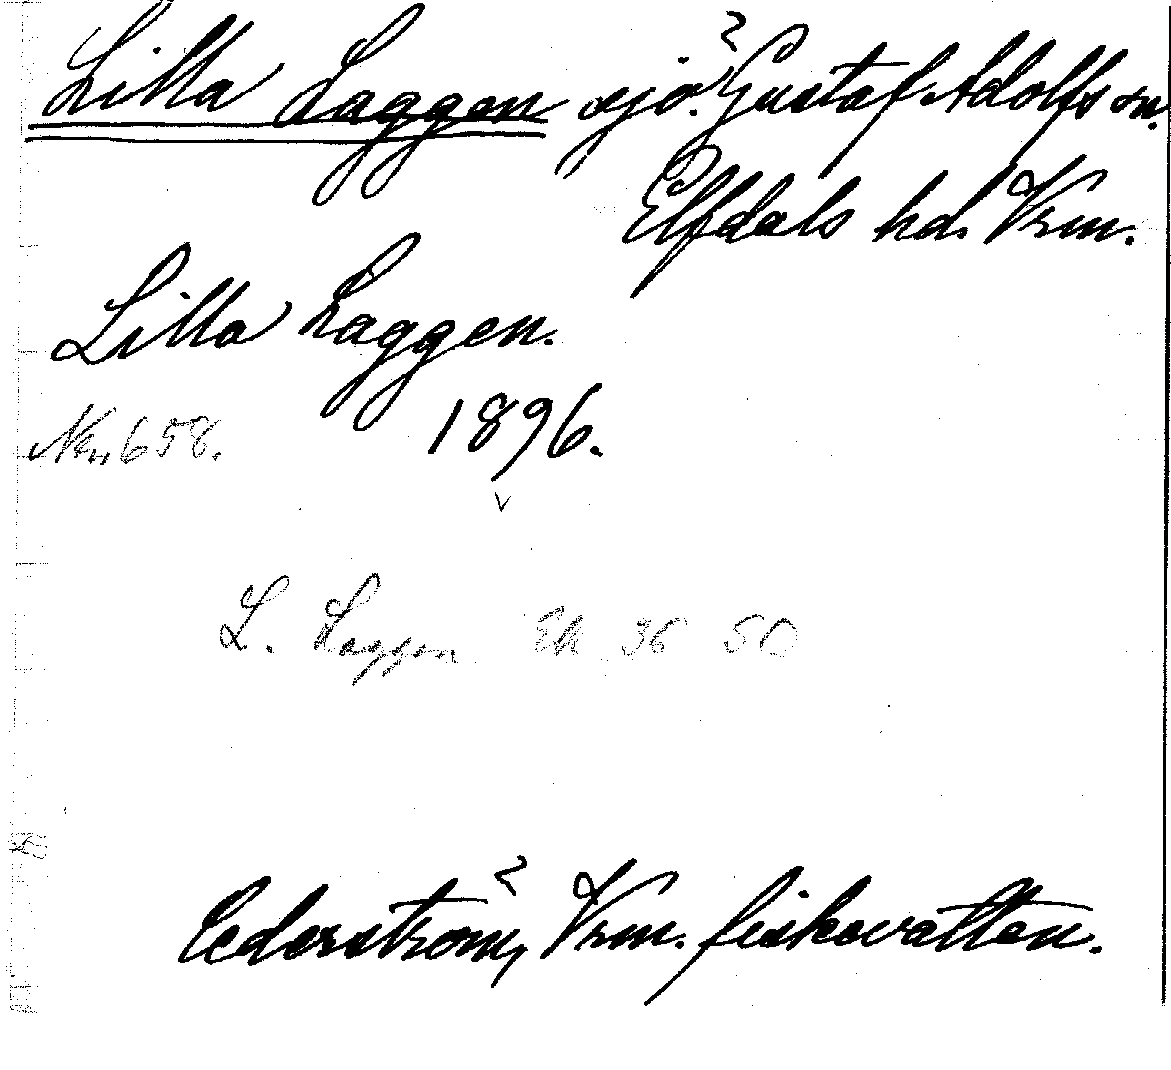 Lilla Laggen sjö. Gustaf Adolfs sn.
Elfdals hd. Vrm.
Lilla Laggen.
Nr. 658. 1896.
L. Laggen Ek 36 50
Cederström, Vrm. fiskevatten.